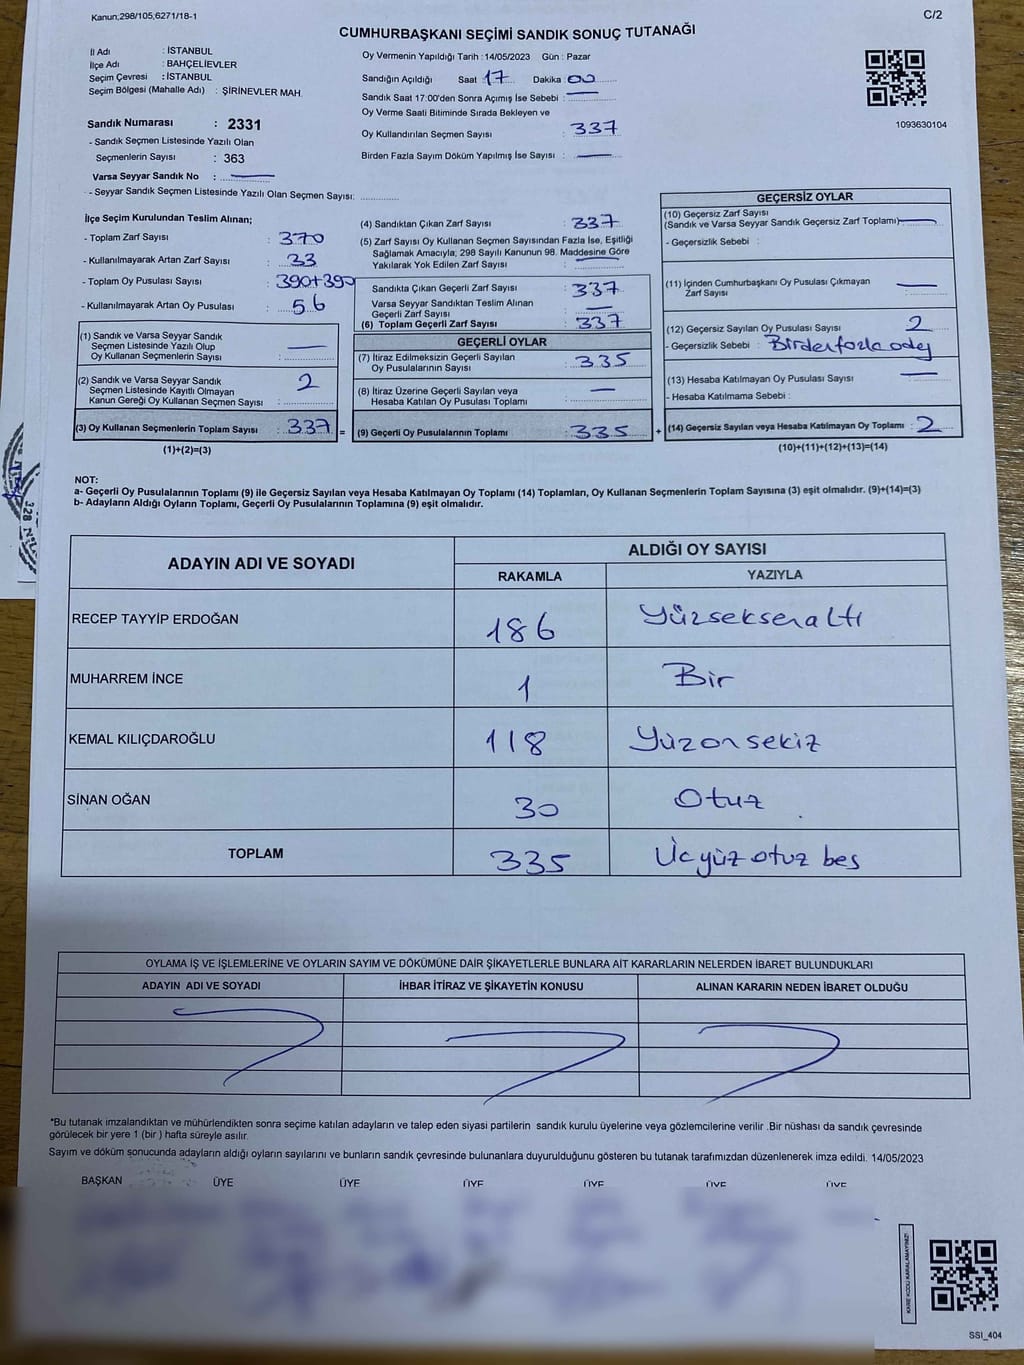 Kanun;298/105;6271/18-1
C/2
CUMHURBAŞKANI SEÇİMİ SANDIK SONUÇ TUTANAĞI
İl Adı : İSTANBUL
İlçe Adı : BAHÇELİEVLER
Seçim Çevresi : İSTANBUL
Seçim Bölgesi (Mahalle Adı) : ŞİRİNEVLER MAH.
Sandık Numarası : 2331
- Sandık Seçmen Listesinde Yazılı Olan
Seçmenlerin Sayısı : 363
Varsa Seyyar Sandık No :
- Seyyar Sandık Seçmen Listesinde Yazılı Olan Seçmen Sayısı:
Oy Vermenin Yapıldığı Tarih : 14/05/2023 Gün : Pazar
Sandığın Açıldığı Saat 17 Dakika 00
Sandık Saat 17:00'den Sonra Açımış İse Sebebi :
Oy Verme Saati Bitiminde Sırada Bekleyen ve
Oy Kullandırılan Seçmen Sayısı : 337
Birden Fazla Sayım Döküm Yapılmış İse Sayısı :
1093630104
İlçe Seçim Kurulundan Teslim Alınan;
- Toplam Zarf Sayısı : 370
- Kullanılmayarak Artan Zarf Sayısı : 33
- Toplam Oy Pusulası Sayısı : 390+390
- Kullanılmayarak Artan Oy Pusulası : 56
(1) Sandık ve Varsa Seyyar Sandık
Seçmen Listesinde Yazılı Olup
Oy Kullanan Seçmenlerin Sayısı :
(2) Sandık ve Varsa Seyyar Sandık
Seçmen Listesinde Kayıtlı Olmayan
Kanun Gereği Oy Kullanan Seçmen Sayısı : 2
(3) Oy Kullanan Seçmenlerin Toplam Sayısı : 337 =
(1)+(2)=(3)
(4) Sandıktan Çıkan Zarf Sayısı : 337
(5) Zarf Sayısı Oy Kullanan Seçmen Sayısından Fazla İse, Eşitliği
Sağlamak Amacıyla; 298 Sayılı Kanunun 98. Maddesine Göre
Yakılarak Yok Edilen Zarf Sayısı :
Sandıkta Çıkan Geçerli Zarf Sayısı : 337
Varsa Seyyar Sandıktan Teslim Alınan
Geçerli Zarf Sayısı :
(6) Toplam Geçerli Zarf Sayısı : 337
GEÇERLİ OYLAR
(7) İtiraz Edilmeksizin Geçerli Sayılan
Oy Pusulalarının Sayısı : 335
(8) İtiraz Üzerine Geçerli Sayılan veya
Hesaba Katılan Oy Pusulası Toplamı :
(9) Geçerli Oy Pusulalarının Toplamı : 335 +
GEÇERSİZ OYLAR
(10) Geçersiz Zarf Sayısı
(Sandık ve Varsa Seyyar Sandık Geçersiz Zarf Toplamı)
- Geçersizlik Sebebi :
(11) İçinden Cumhurbaşkanı Oy Pusulası Çıkmayan
Zarf Sayısı :
(12) Geçersiz Sayılan Oy Pusulası Sayısı : 2
- Geçersizlik Sebebi : Birden fazla aday
(13) Hesaba Katılmayan Oy Pusulası Sayısı :
- Hesaba Katılmama Sebebi :
(14) Geçersiz Sayılan veya Hesaba Katılmayan Oy Toplamı : 2
(10)+(11)+(12)+(13)=(14)
NOT:
a- Geçerli Oy Pusulalarının Toplamı (9) ile Geçersiz Sayılan veya Hesaba Katılmayan Oy Toplamı (14) Toplamları, Oy Kullanan Seçmenlerin Toplam Sayısına (3) eşit olmalıdır. (9)+(14)=(3)
b- Adayların Aldığı Oyların Toplamı, Geçerli Oy Pusulalarının Toplamına (9) eşit olmalıdır.
ADAYIN ADI VE SOYADI ALDIĞI OY SAYISI
RAKAMLA YAZIYLA
RECEP TAYYİP ERDOĞAN 186 Yüzseksenaltı
MUHARREM İNCE 1 Bir
KEMAL KILIÇDAROĞLU 118 Yüzonsekiz
SİNAN OĞAN 30 Otuz
TOPLAM 335 Üçyüz otuz beş
OYLAMA İŞ VE İŞLEMLERİNE VE OYLARIN SAYIM VE DÖKÜMÜNE DAİR ŞİKAYETLERLE BUNLARA AİT KARARLARIN NELERDEN İBARET BULUNDUKLARI
ADAYIN ADI VE SOYADI İHBAR İTİRAZ VE ŞİKAYETİN KONUSU ALINAN KARARIN NEDEN İBARET OLDUĞU
*Bu tutanak imzalandıktan ve mühürlendikten sonra seçime katılan adayların ve talep eden siyasi partilerin sandık kurulu üyelerine veya gözlemcilerine verilir .Bir nüshası da sandık çevresinde
görülecek bir yere 1 (bir ) hafta süreyle asılır.
Sayım ve döküm sonucunda adayların aldığı oyların sayılarını ve bunların sandık çevresinde bulunanlara duyurulduğunu gösteren bu tutanak tarafımızdan düzenlenerek imza edildi. 14/05/2023
BAŞKAN ÜYE ÜYE ÜYE ÜYE ÜYE ÜYE
KARE KODU KARALAMAYINIZ!
SSI_404